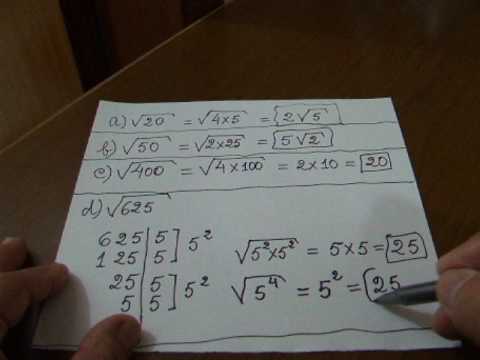 a) √20 = √4×5 = 2√5
b) √50 = √2×25 = 5√2
c) √400 = √4×100 = 2×10 = 20
d) √625
625 | 5
125 | 5 ] 5²
25 | 5
5 | 5 ] 5²
√5²×5² = 5×5 = 25
√5⁴ = 5² = 25